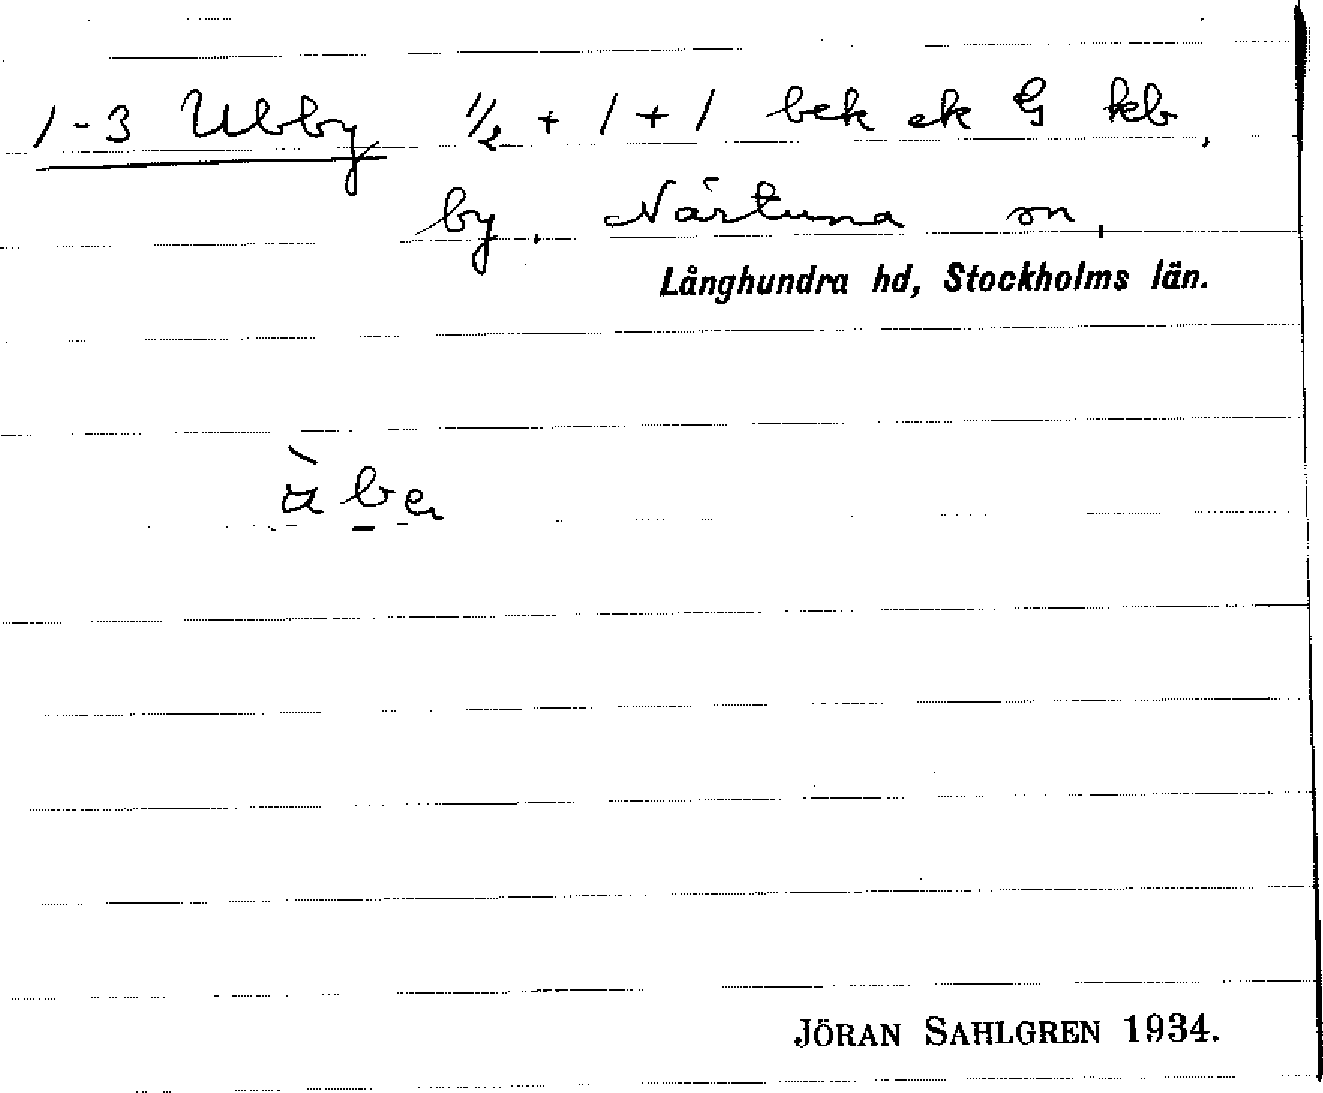 1-3 Ubby 1/2 + 1 + 1 bek ek G kb,
by, Närtuna sn,
Långhundra hd, Stockholms län.
JÖRAN SAHLGREN 1934.